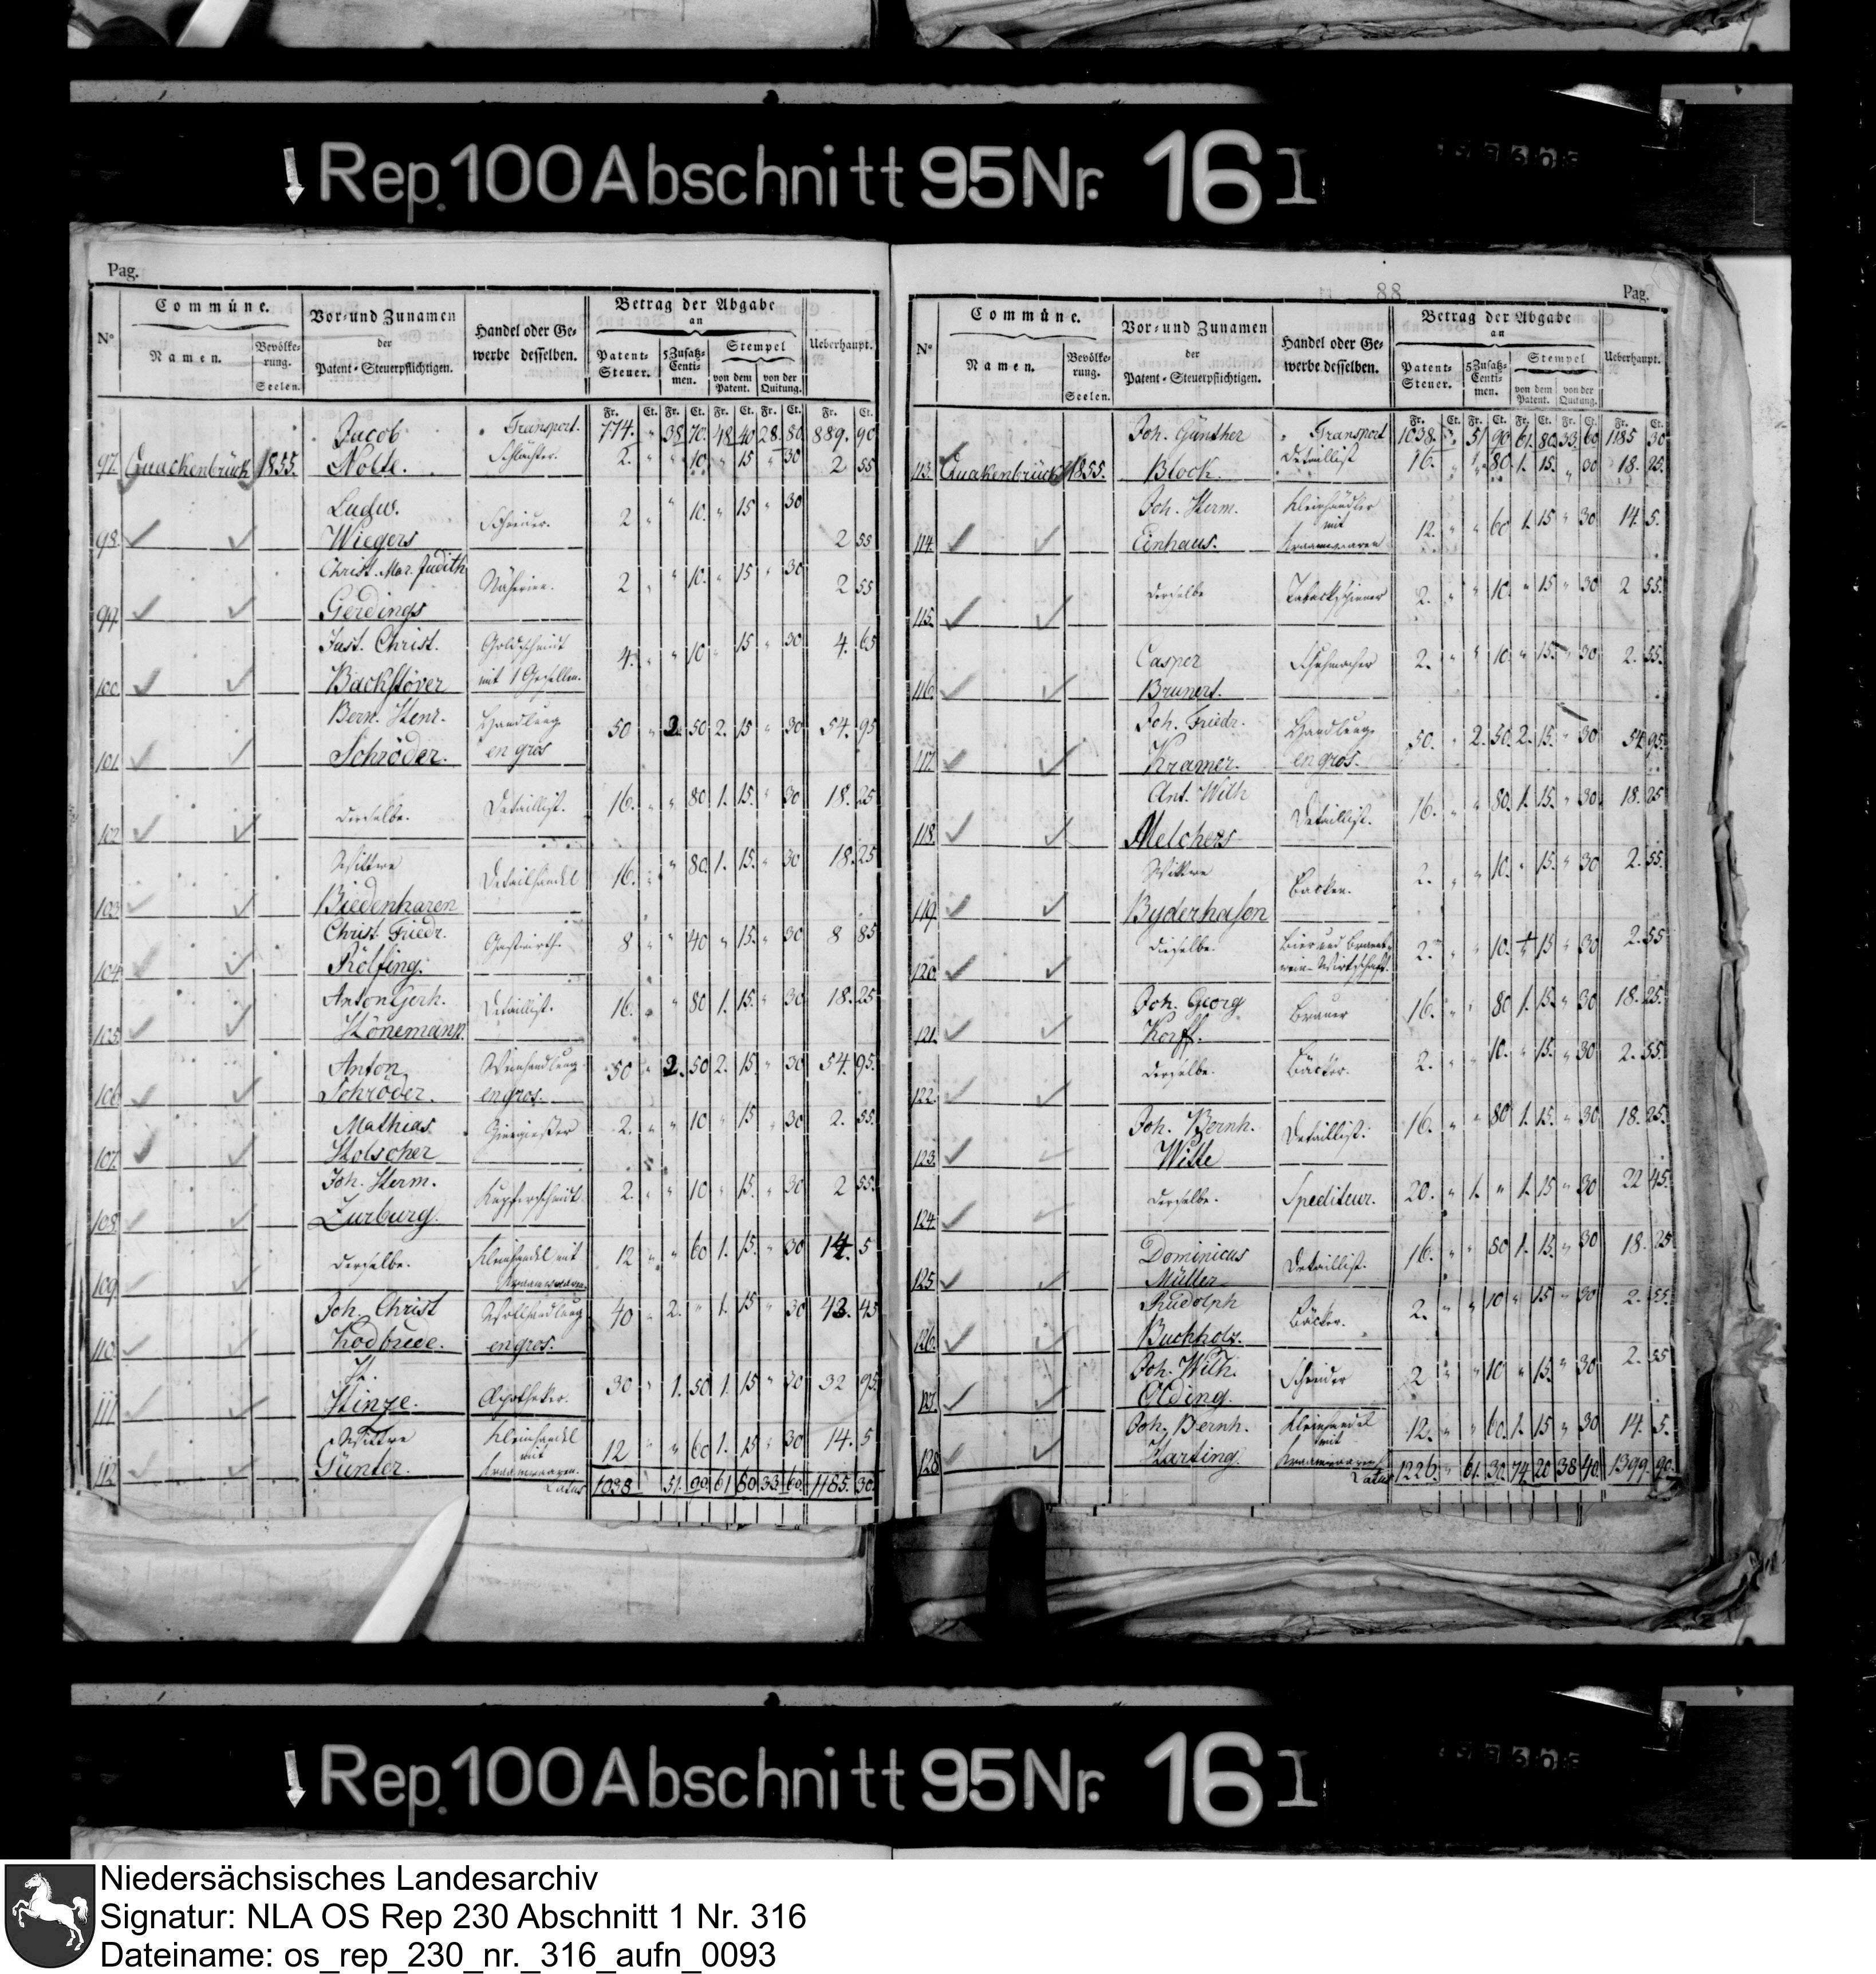 Rep. 100 Abschnitt 95 Nr. 16 I
Pag.
N°
Commüne.
Namen.
Bevölke-
rung.
Seelen.
Vor- und Zunamen
der
Patent-Steuerpflichtigen.
Handel oder Ge-
werbe desselben.
Betrag der Abgabe
an
Patent-
Steuer.
5 Zusatz-
Centi-
men.
Stempel
von dem
Patent.
von der
Quitung.
Ueberhaupt.
Fr. Ct. Fr. Ct. Fr. Ct. Fr. Ct. Fr. Ct.
Transport. 774. " 38 70. 48 40 28. 80 889. 90
97. Quackenbrück 1855. Jacob
Nolte. Schlachter. 2. " " 10. " 15 " 30 2 55
98. Ludw.
Wiegers Schneider. 2 " " 10. " 15 " 30 2 55
99. Christ. Mar. Judith
Gerdings Näherinn. 2 " " 10. " 15 " 30 2 55
100. Just. Christ. Goldschmidt
Backstöver mit 1 Gesellen. 4. " " 10 " 15 " 30 4. 65
101. Bern. Henr. Handlung
Schröder. en gros 50 " 2. 50 2. 15 " 30 54. 95
102. Derselbe. Detaillist. 16. " " 80 1. 15. " 30 18. 25
103. Wittwe
Biedenharen Detailhandel 16. " " 80. 1. 15. " 30 18. 25
104. Christ. Friedr.
Rölfing. Gastwirth. 8 " " 40 " 15. " 30 8 85
105. Anton Gerh.
Hönemann. Detaillist. 16. " " 80 1. 15. " 30 18. 25
106. Anton Weinhandlung
Schröder. en gros. 50 " 2. 50 2. 15 " 30 54. 95.
107. Mathias
Holscher Zinngießer 2. " " 10 " 15 " 30 2. 55.
108. Joh. Herm.
Zurburg. Kupferschmidt 2. " " 10 " 15. " 30 2 55.
109. Derselbe. Kleinhandel mit
Kraamwaaren. 12 " " 60 1. 15. " 30 14. 5
110. Joh. Christ Wollhandlung
Kodbrede. en gros. 40 " 2. " 1. 15 " 30 43. 45
111. H.
Hinze. Apotheker. 30 " 1. 50 1. 15 " 30 32 95.
112. Wittwe Kleinhandel
mit
Günter. Kraamwaaren. 12 " " 60 1. 15 " 30 14. 5
Latus 1038 51. 90. 61 80 33 60. 1185. 30.
88
Pag.
N°
Commüne.
Namen.
Bevölke-
rung.
Seelen.
Vor- und Zunamen
der
Patent-Steuerpflichtigen.
Handel oder Ge-
werbe desselben.
Betrag der Abgabe
an
Patent-
Steuer.
5 Zusatz-
Centi-
men.
Stempel
von dem
Patent.
von der
Quitung.
Ueberhaupt.
Fr. Ct. Fr. Ct. Fr. Ct. Fr. Ct. Fr. Ct.
Transport 1038. " 51 90 61. 80 33. 60 1185 30
113. Quakenbrück 1855. Joh. Günther
Block. Detaillist 16. " " 80. 1. 15. " 30 18. 25.
114. Joh. Herm. Kleinhändler
mit
Einhaus. Kraamwaaren 12. " " 60 1. 15 " 30 14. 5.
115. Derselbe Tabackspinner 2. " " 10. " 15 " 30 2 55.
116. Casper
Brunert. Schuhmacher 2. " " 10. " 15. " 30 2. 55.
117. Joh. Friedr. Handlung
Kramer. en gros. 50. " 2. 50. 2. 15. " 30 54 95.
118. Ant. Wilh
Melchers Detaillist. 16. " " 80. 1. 15. " 30. 18. 25
119. Wittwe
Byderhasen Backer. 2. " " 10. " 15. " 30 2. 55.
120. Dieselbe. Bier und Brannt-
wein-Wirthschaft. 2. " " 10. " 15 " 30 2. 55
121. Joh. Georg
Korff. Brauer 16. " " 80 1. 15. " 30 18. 25.
122. Derselbe. Bäcker. 2. " " 10. " 15. " 30 2. 55.
123. Joh. Bernh.
Witte Detaillist. 16. " " 80 1. 15. " 30 18. 25.
124. Derselbe. Spediteur. 20. " 1. " 1. 15 " 30 22 45.
125. Dominicus
Müller Detaillist. 16. " " 80 1. 15. " 30 18. 25
126. Rudolph
Buchholz. Bäcker. 2. " " 10 " 15 " 30 2. 55.
127. Joh. Wilh.
Olding. Schneider 2 " " 10 " 15. " 30 2. 55
128. Joh. Bernh. Kleinhandel
mit
Harting. Kraamwaaren 12. " " 60. 1. 15 " 30 14. 5.
Latus 1226. " 61. 30. 74 20 38 40. 1399. 90.
Rep. 100 Abschnitt 95 Nr. 16 I
Niedersächsisches Landesarchiv
Signatur: NLA OS Rep 230 Abschnitt 1 Nr. 316
Dateiname: os_rep_230_nr._316_aufn_0093